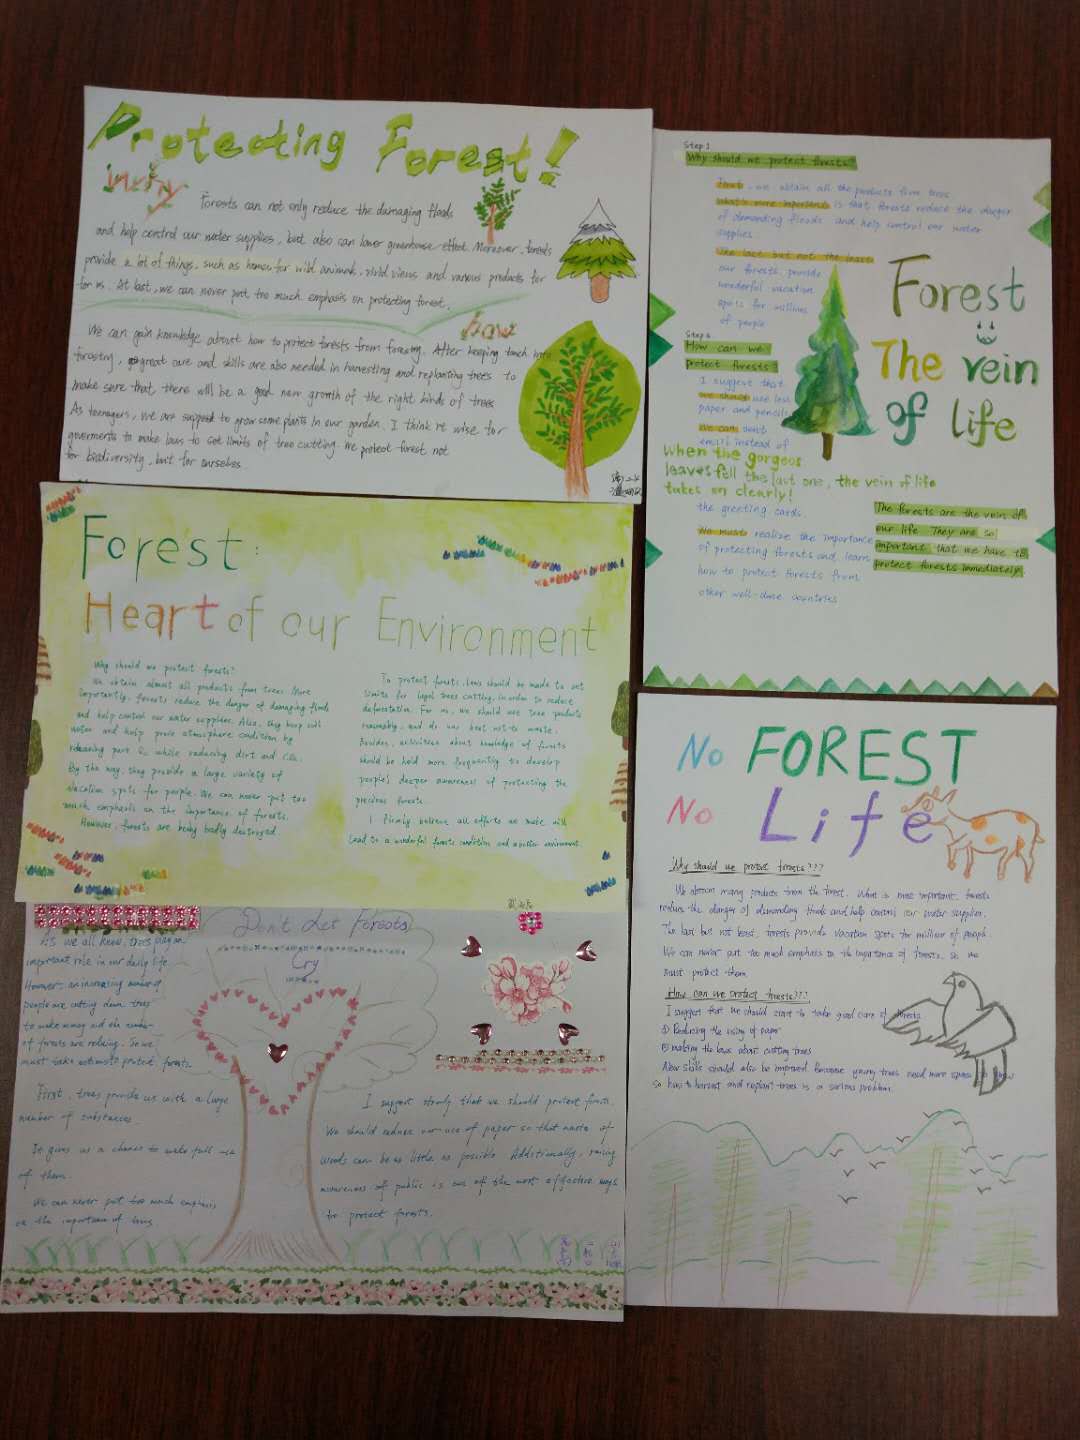 Protecting Forest!
why
Forests can not only reduce the damaging floods
and help control our water supplies, but also can lower greenhouse effect. Moreover, forests
provide a lot of things, such as homes for wild animals, vivid views and various products for
for us. At last, we can never put too much emphasis on protecting forest.
how
We can gain knowledge about how to protect forests from forestry. After keeping touch with
forestry, great care and skills are also needed in harvesting and replanting trees to
make sure that there will be a good new growth of the right kinds of trees
As teenagers, we are suppost to grow some plants in our garden. I think it wise for
goverments to make laws to set limits of tree cutting. We protect forest not
for biodiversity, but for ourselves.
Step 1
Why should we protect forests?
, we obtain all the products from trees.
What's more important is that forests reduce the danger
of demanding floods and help control our water
supplies.
The last but not the least
our forests provide
wonderful vacation
spots for millions
of people
Step 2
How can we
protect forests?
I suggest that
we should use less
paper and pencils
We can sent
email instead of
When the gorgeos
leaves fell the last one, the vein of life
takes on clearly!
the greeting cards.
We must realize the importance
of protecting forests and learn
how to protect forests from
other well-done countries
Forest
The vein
of life
The forests are the vein of
our life. They are so
important that we have to
protect forests immediately.
Forest:
Heart of our Environment
Why should we protect forests?
We obtain almost all products from trees. More
importantly, forests reduce the danger of damaging floods
and help control our water supplies. Also, they keep soil
water and help prove atmosphere condition by
releasing pure O₂ while reducing dirt and CO₂.
By the way, they provide a large variety of
vacation spots for people. We can never put too
much emphasis on the importance of forests.
However, forests are being badly destroyed.
To protect forests, laws should be made to set
limits for legal trees cutting, in order to reduce
deforestation. For us, we should use tree products
reasonably, and do our best not to waste.
Besides, activities about knowledge of forests
should be held more frequently to develop
people's deeper awareness of protecting the
precious forests.
I firmly believe all efforts we make will
lead to a wonderful forests condition and a better environment.
Don't Let Forests
Cry
As we all know, trees play an
important role in our daily life.
However, an increasing number of
people are cutting down trees
to make money and the number
of forests are reducing. So we
must take protect forests.
First, trees provide us with a large
number of substances.
It gives us a chance to make full use
of them.
We can never put too much emphasis
on the importance of trees.
I suggest strongly that we should protect forests.
We should reduce our use of paper so that waste of
woods can be as little as possible. Additionally, raising
awareness of public is one of the most effective ways
to protect forests.
No FOREST
No Life
Why should we protect forests???
We obtain many products from the forest. What is most important, forests
reduce the danger of demanding floods and help control our water supplies.
The last but not least, forests provide vacation spots for million of people.
We can never put too much emphasis to the importance of forests, so we
must protect them.
How can we protect forests???
I suggest that we should start to take good care of forests.
① Reducing the using of paper
② making the laws about cutting trees
New skills should also be improved. Because young trees need more space to grow
so how to harvest and replant trees is a serious problem.